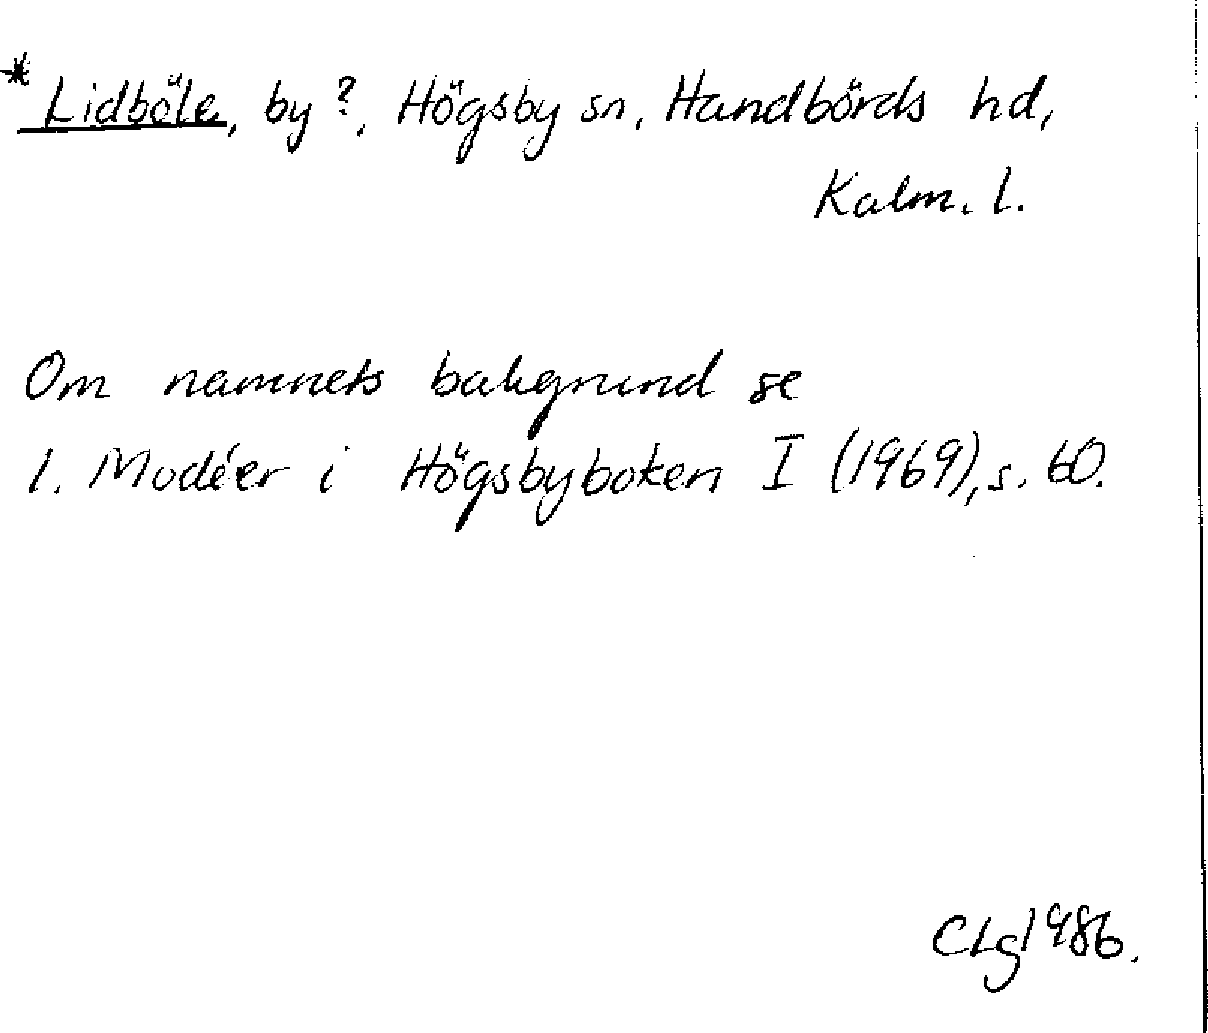 *Lidböle, by?, Högsby sn, Handbörds hd,
Kalm. l.
Om namnets bakgrund se
I. Modéer i Högsbyboken I (1969), s. 60.
CLg 1986.